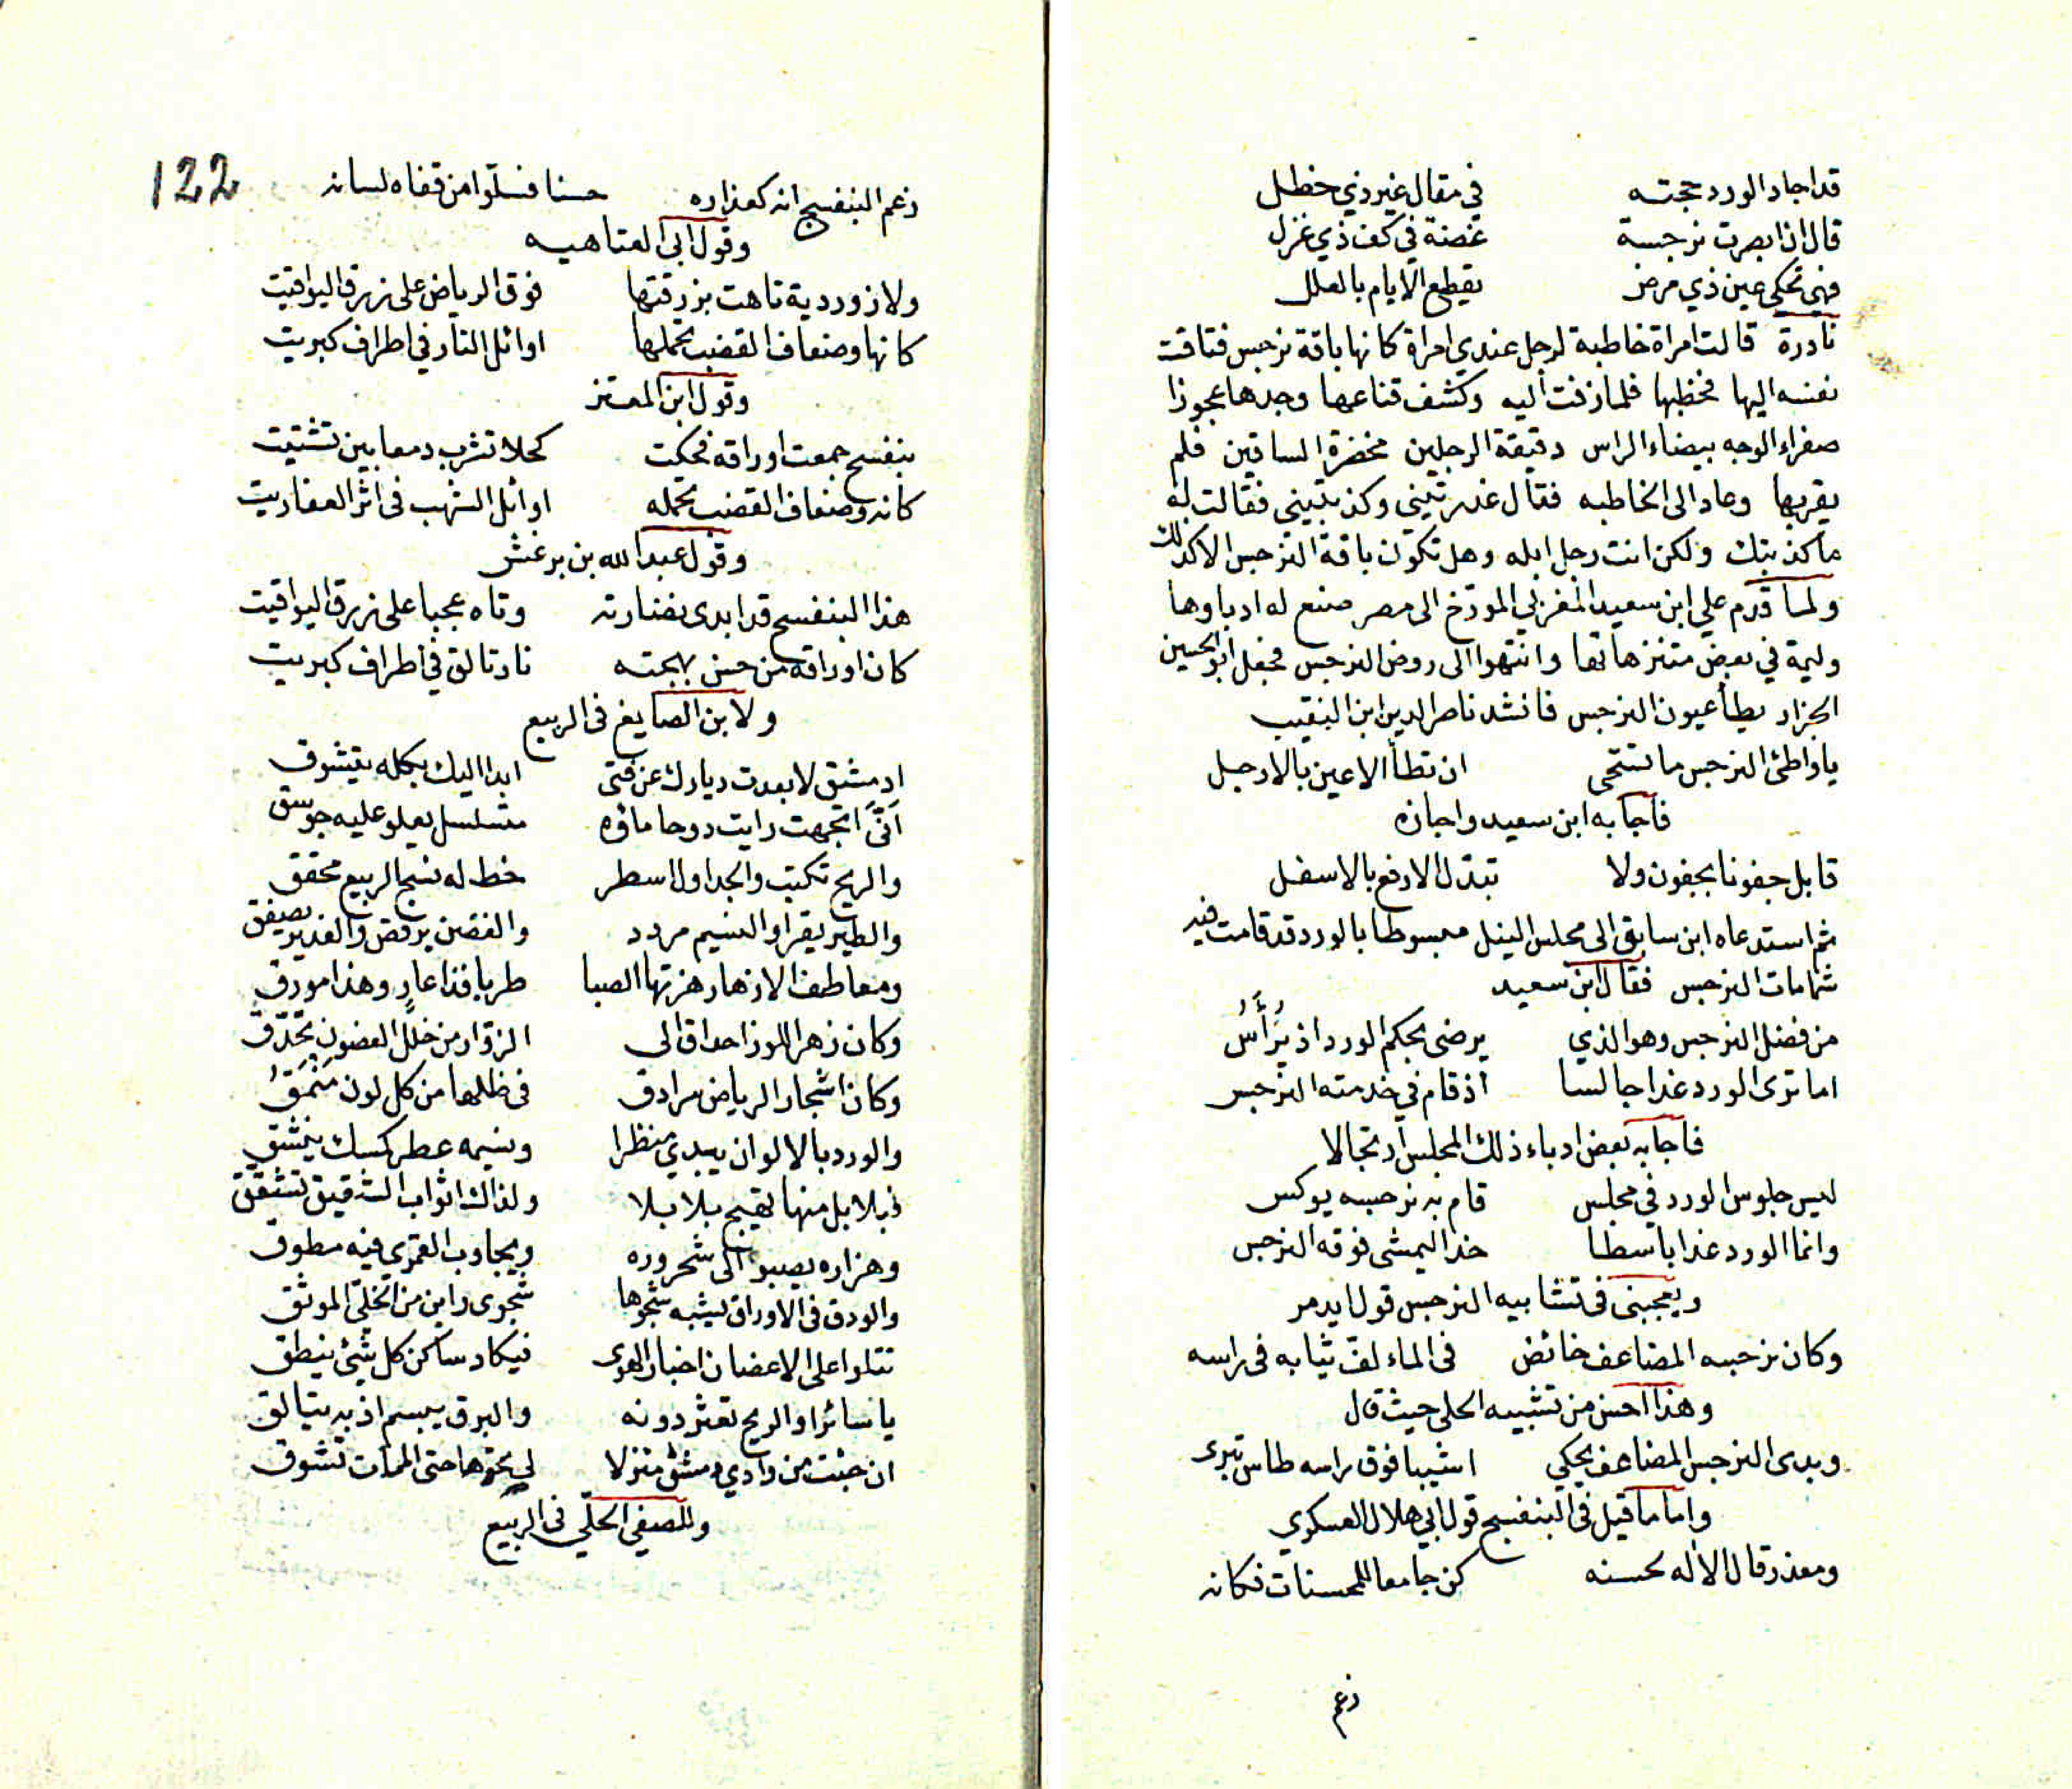 قد اجاد الورد حجته في مقال غير ذي خطل
قال اذا بصرت نرجسة غضنة في كف ذي غزل
فهي تحكي عين ذي مرض يقطع الايام بالعلل
نادرة قالت امراة خاطبة لرجل عندي امراة كانها باقة نرجس فتاقت
نفسه اليها فخطبها فلما زفت اليه وكشف قناعها وجدها عجوزا
صفراء الوجه بيضاء الراس دقيقة الرجلين مخضرة الساقين فلم
يقربها وعاد الى الخاطبه فقال غدرتيني وكذبتيني فقالت له
ما كذبتك ولكن انت رجل ابله وهل تكون باقة النرجس الا كذلك
ولما قدم علي ابن سعيد المغربي المورخ الى مصر صنع له ادباوها
وليمة في بعض متنزهاتها وانتهوا الى روض النرجس فجعل ابو الحسين
الجزار يطأ عيون النرجس فانشد ناصر الدين ابن النقيب
يا واطئ النرجس ما تستحى ان تطأ الاعين بالارجل
فاجابه ابن سعيد واجازه
قابل جفونا بجفون ولا تبتذل الارفع بالاسفل
ثم استدعاه ابن سابق الى مجلس النيل مبسوطا بالورد قد قامت فيه
شمامات النرجس فقال ابن سعيد
من فضل النرجس وهو الذي يرضى بحكم الورد اذ يَرْأَسُ
اما ترى الورد غدا جالسا اذ قام في خدمته النرجس
فاجابه بعض ادباء ذلك المجلس ارتجالا
ليس جلوس الورد في مجلس قام به نرجسه يوكس
وانما الورد غدا باسطا خدا ليمشى فوقه النرجس
ويعجبنى فى تشابيه النرجس قول ايدمر
وكان نرجسه المضاعف خائض فى الماء لف ثيابه فى راسه
وهذا احسن من تشبيه الحلى حيث قال
وبدى النرجس المضاعف يحكي اشيبا فوق راسه طاس تبرى
واما ما قيل فى البنفسج قول ابي هلال العسكري
ومعذر قال الاله لحسنه كن جامعا للمحسنات فكانه
زعم
122
زعم البنفسج انه كعذاره حسنا فسلوا من قفاه لسانه
وقول ابى العتاهيه
ولازوردية تاهت بزرقتها فوق الرياض على زرق اليواقيت
كانها وضعاف القضب تحملها اوائل النار في اطراف كبريت
وقول ابن المعتز
بنفسج جمعت اوراقه فحكت كحلا تشرب دمعا بين تشتيت
كانه وضعاف القضب تحمله اوائل الشهب فى اثر العفاريت
وقول عبد الله بن برغش
هذا البنفسج قد ابدى نضارته وتاه عجبا على زرق اليواقيت
كان اوراقه من حسن بهجته نار تالق في اطراف كبريت
ولابن الصايغ فى الربيع
ادمشق لا بعدت ديارك عن فتى ابدا اليك بكله يتشوق
انَّى اتجهت رايت دوحا ماؤه متسلسل يعلو عليه جوسق
والريح تكتب والجداول اسطر خط له نسج الربيع محقق
والطير يقرا والنسيم مردد والغصن يرقص والغدير يصفق
ومعاطف الازهار هزتها الصبا طربا فذا عارٍ وهذا مورق
وكان زهر اللوز احداق الى الزوار من خلل الغصون تحدّق
وكان اشجار الرياض سرادق فى ظلها من كل لون مَنْمَقُ
والورد بالالوان يبدي منظرا ونسيمه عطر كمسك ينشق
فبلابل منها تهيج بلابلا ولذاك اثواب الشقيق تشقق
وهزاره يصبوا الى شحروره ويجاوب القمرى فيه مطوق
والورق فى الاوراق يشبه شجوها شجوى واين من الخليّ الموثق
تتلوا على الاغصان اخبار الهوى فيكاد ساكن كل شئ ينطق
يا سائرا والريح تعثر دونه والبرق يبسم اذ به يتالق
ان جئت من وادي دمشق منزلا لي نحوها حتى الممات تشوق
وللصفي الحلّي فى الربيع